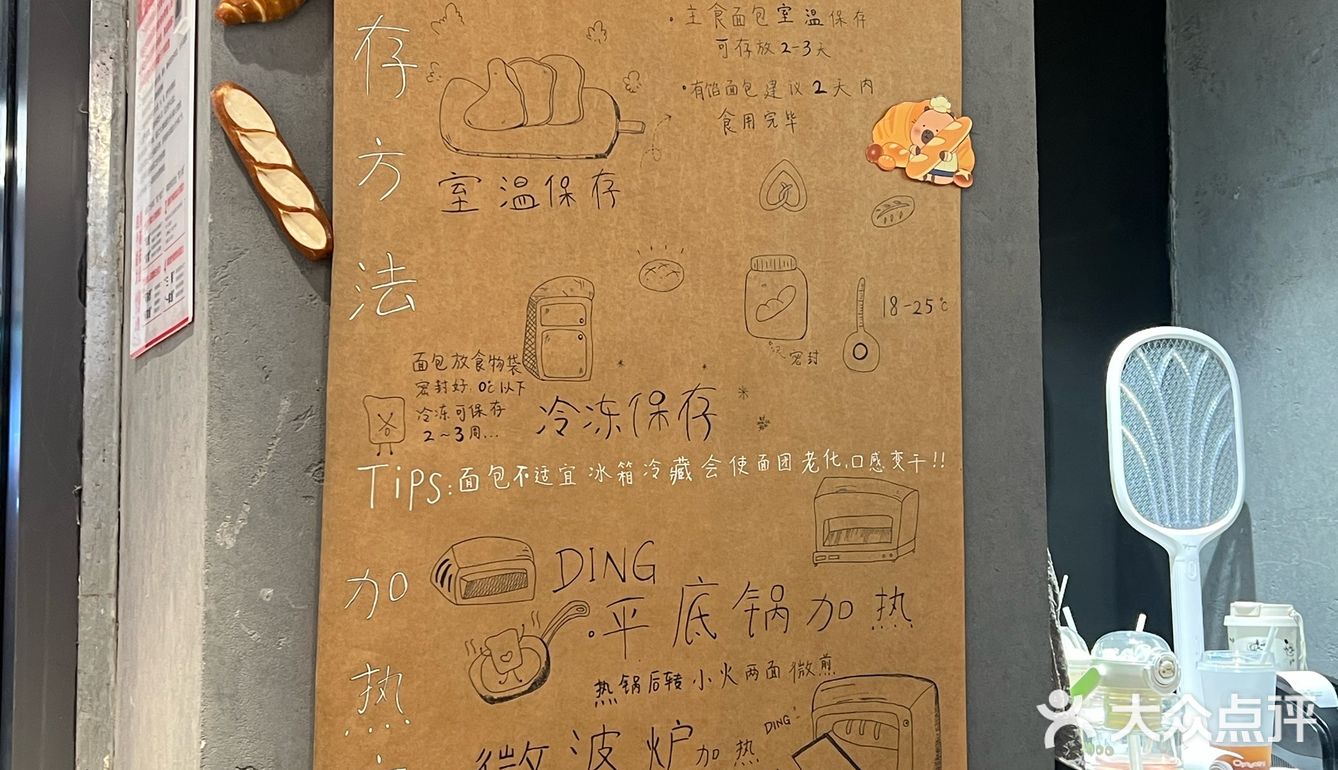 存方法
·主食面包室温保存
可存放2-3天
·有馅面包建议2天内
食用完毕
室温保存
18-25℃
密封
面包放食物袋
密封好，0℃以下
冷冻可保存
2~3周...
冷冻保存
Tips:面包不适宜冰箱冷藏会使面团老化,口感变干!!
加热
DING
·平底锅加热
热锅后转小火两面微煎
微波炉加热
DING!
大众点评